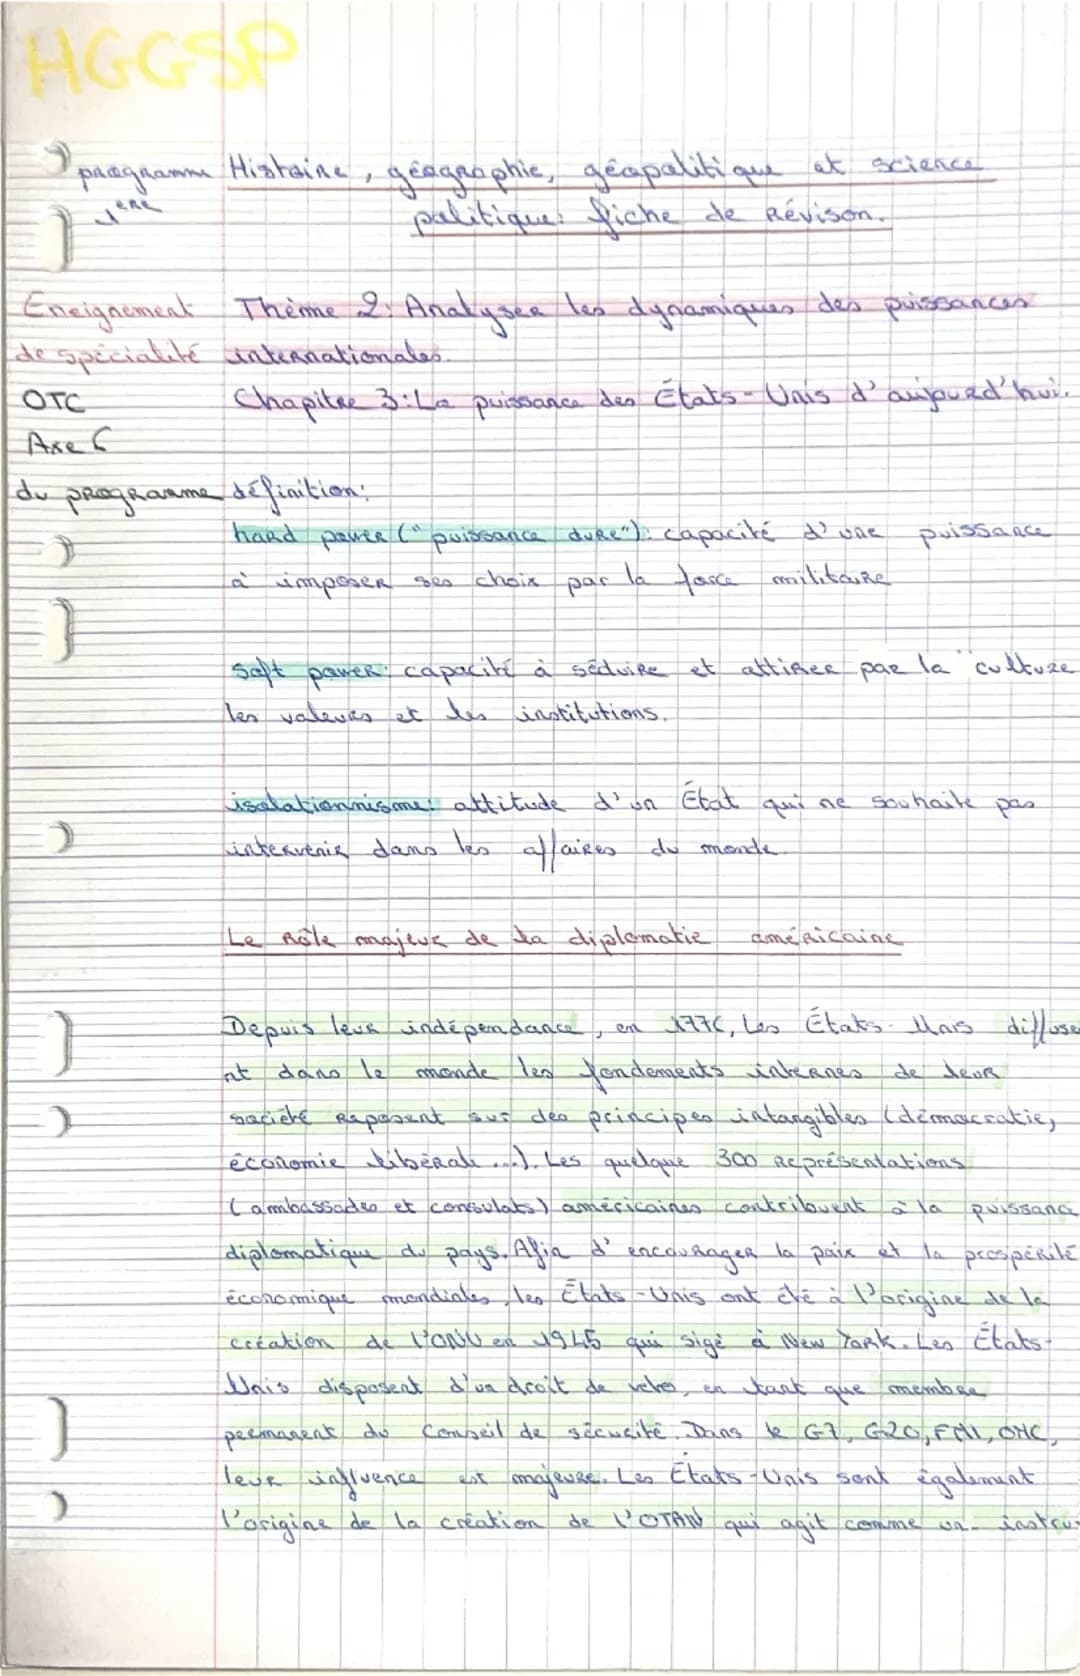 HGGSP
programme Histoire, géographie, géopolitique et science
1ere politique: fiche de révison.
Eneignement Thème 2: Analyser les dynamiques des puissances
de spécialité internationales.
OTC Chapitre 3: La puissance des États-Unis d'aujourd'hui.
Axe 6
du programme définition:
hard power ("puissance dure"): capacité d'une puissance
à imposer ses choix par la force militaire
Soft power: capacité à séduire et attirer par la culture
les valeurs et les institutions.
isolationnisme: attitude d'un État qui ne souhaite pas
intervenir dans les affaires du monde.
Le rôle majeur de la diplomatie américaine
Depuis leur indépendance, en 1776, Les États-Unis diffuse
nt dans le monde les fondements internes de leur
société reposent sur des principes intangibles (démocratie,
économie libérale ...). Les quelque 300 représentations
(ambassades et consulats) américaines contribuent à la puissance
diplomatique du pays. Afin d'encourager la paix et la prospérité
économique mondiales, les États-Unis ont été à l'origine de la
création de l'ONU en 1945 qui sigè à New York. Les États-
Unis disposent d'un droit de veto, en tant que membre
permanent du Conseil de sécurité. Dans le G7, G20, FMI, OMC,
leur influence est majeure. Les États-Unis sont également
l'origine de la création de l'OTAN qui agit comme un instru-